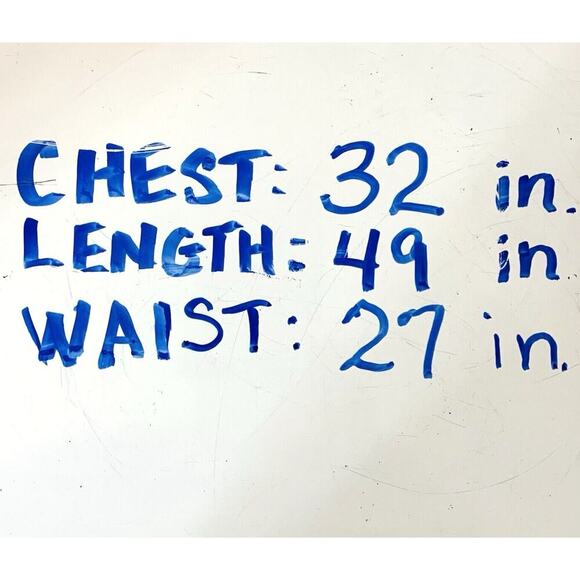 CHEST: 32 in.
LENGTH: 49 in
WAIST: 27 in.